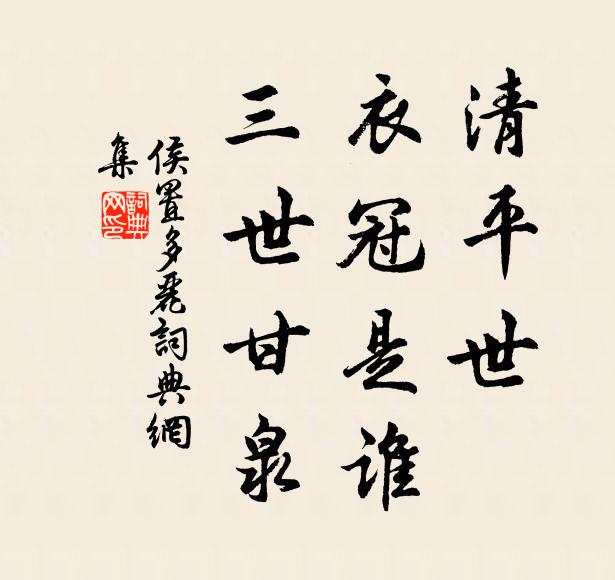 清平世
衣冠是誰
三世甘泉
侯置多麗詞典網
集
詞典
网印